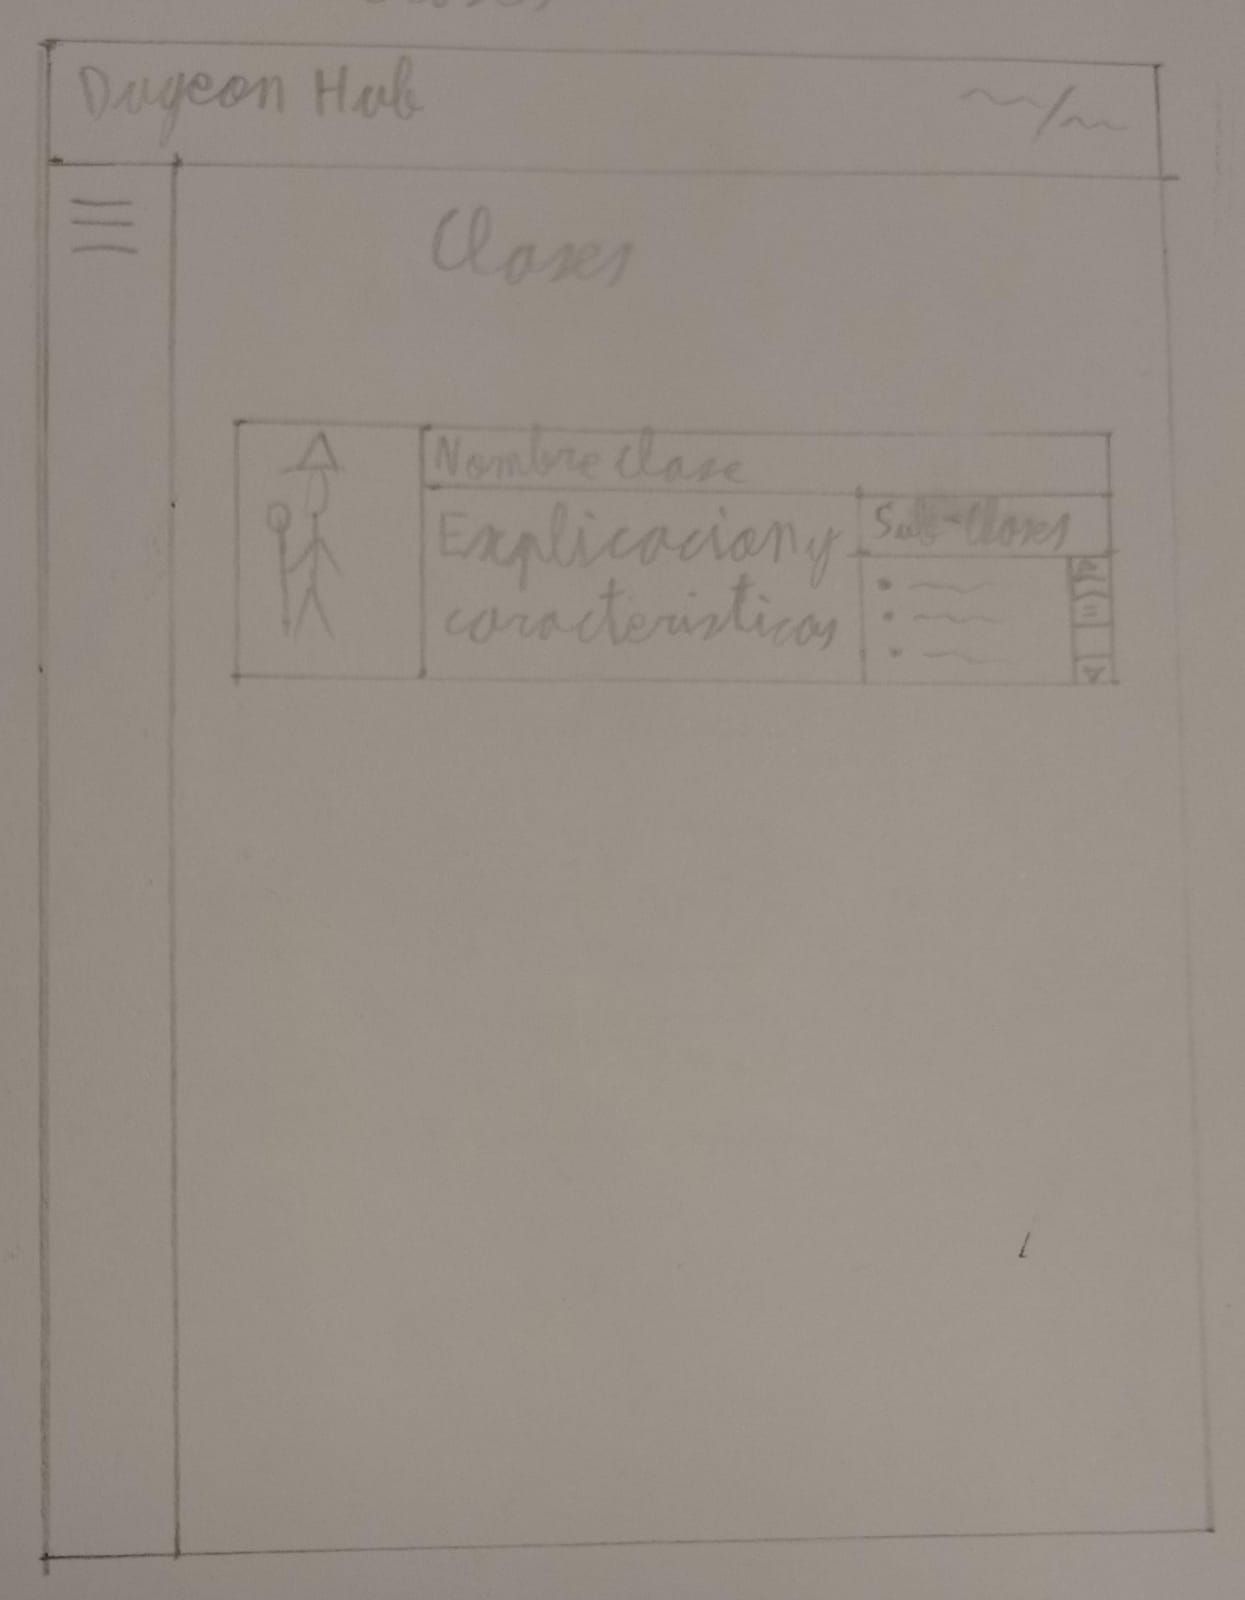 Dugeon Hub
Clases
Nombre clase
Explicacion y
caracteristicas
Sub-Clases